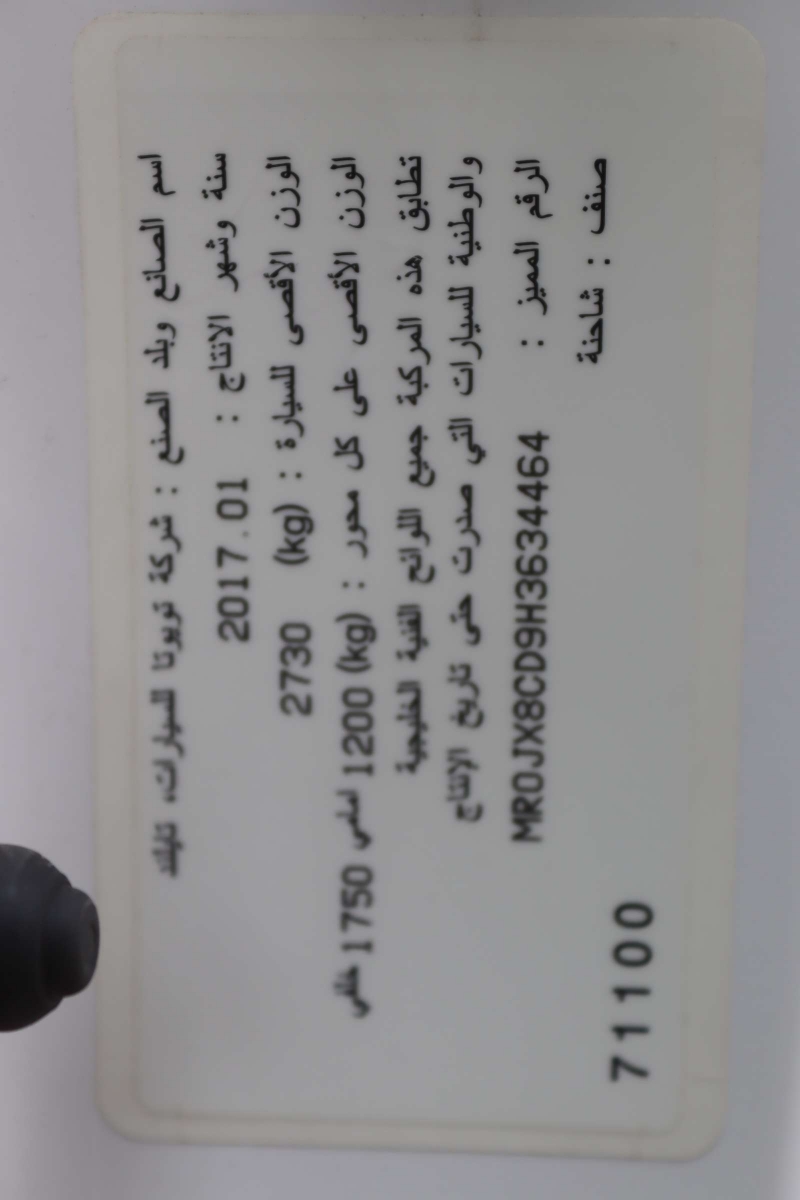 اسم الصانع وبلد الصنع : شركة تويوتا للسيارات، تايلند
سنة وشهر الانتاج : 2017.01
الوزن الأقصى للسيارة : (kg) 2730
الوزن الأقصى على كل محور : (kg) 1200 امامي 1750 خلفي
تطابق هذه المركبة جميع اللوائح الفنية الخليجية
والوطنية للسيارات التي صدرت حتى تاريخ الانتاج
الرقم المميز : MR0JX8CD9H3634464
صنف : شاحنة
71100